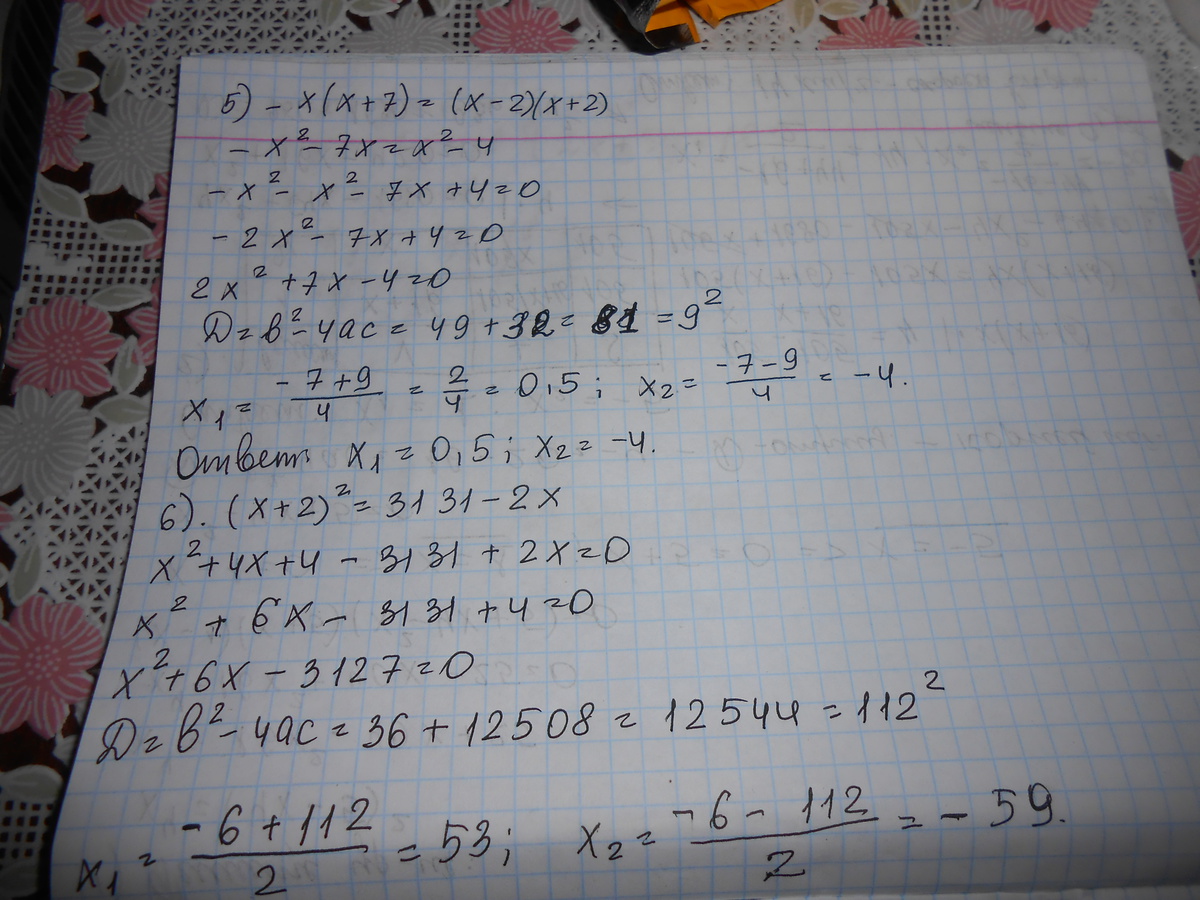 5) - x(x+7) = (x-2)(x+2)
- x² - 7x = x² - 4
- x² - x² - 7x + 4 = 0
- 2x² - 7x + 4 = 0
2x² + 7x - 4 = 0
Д = в² - 4ас = 49 + 32 = 81 = 9²
x₁ = (-7+9)/4 = 2/4 = 0,5; x₂ = (-7-9)/4 = -4.
Ответ: x₁ = 0,5; x₂ = -4.
6). (x+2)² = 3131 - 2x
x² + 4x + 4 - 3131 + 2x = 0
x² + 6x - 3131 + 4 = 0
x² + 6x - 3127 = 0
Д = в² - 4ас = 36 + 12508 = 12544 = 112²
x₁ = (-6+112)/2 = 53; x₂ = (-6-112)/2 = -59.